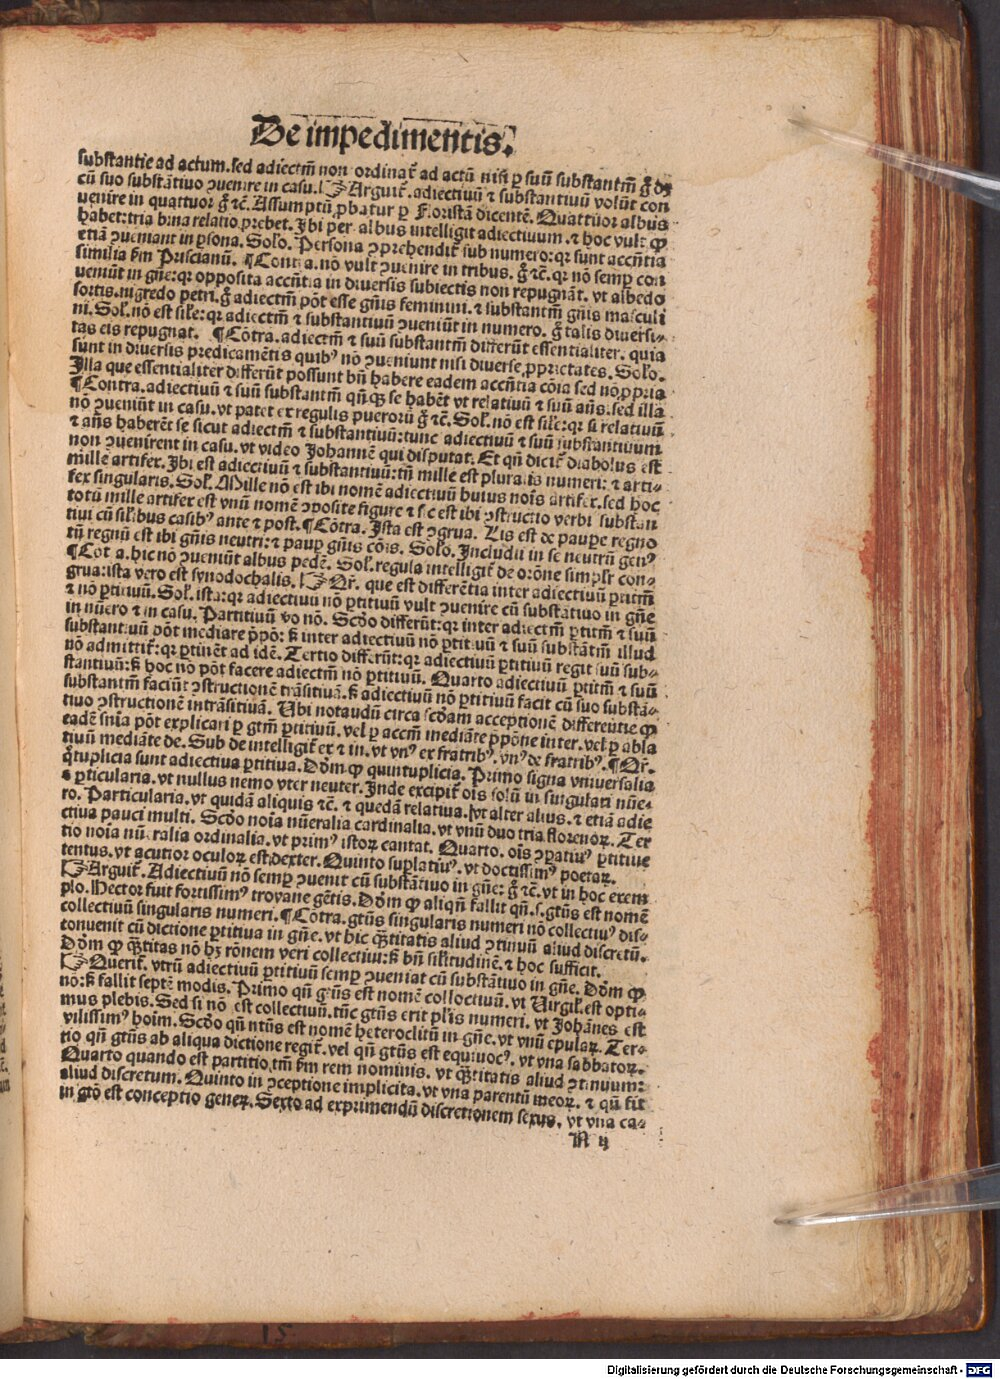 De impedimentis.
substantie ad actum. sed adiectm̄ non ordinat᷑ ad actū nisi ꝑ suū substantm̄ g̊ dꝫ
cū suo substātiuo ꝯuenire in casu. ☞Arguit᷑. adiectiuū ⁊ substantiuū volūt con
uenire in quattuor g̊ ⁊c̄. Assumptū ꝓbatur ꝑ Floristā dicentē. Quattuor albus
habet: tria bina relatio prebet. Ibi per albus intelligit adiectiuum. ⁊ hoc vult ꝙ
etiā ꝯueniant in ꝑsona. Solo. Persona ꝯprehendit᷑ sub numero: qr sunt accn̄tia
similia ẜm Prisciianū. ¶Contra. nō vult ꝯuenire in tribus. g̊ ⁊c̄. qr nō semꝑ con
ueniūt in gn̄e: qr opposita accn̄tia in diuersis subiectis non repugnāt. vt albedo
sortis. nigredo petri. g̊ adiectm̄ pōt esse gn̄is feminini. ⁊ substantm̄ gn̄is masculi
ni. Sol. nō est sile: qr adiectm̄ ⁊ substantiuū ꝯueniūt in numero. g̊ talis diuersi-
tas eis repugnat. ¶Cōtra. adiectm̄ ⁊ suū substantm̄ differūt essentialiter. quia
sunt in diuersis predicamētis quibꝰ nō ꝯueniunt nisi diuerse ꝓprietates. Solo.
Illa que essentialiter differūt possunt bn̄ habere eadem accn̄tia cōia sed nō ꝓpria
¶Contra. adiectiuū ⁊ suū substantm̄ qn̄qꝫ se habēt vt relatiuū ⁊ suū an̄s. sed illa
nō ꝯueniūt in casu. vt patet ex regulis puerorū g̊ ⁊c̄. Sol. nō est sile: qr si relatiuū
⁊ an̄s haberēt se sicut adiectm̄ ⁊ substantiuū: tunc adiectiuū ⁊ suū substantiuum
non ꝯuenirent in casu. vt video Johannē qui disputat. Et qn̄ dicit᷑ diabolus est
mille artifex. Ibi est adiectiuū ⁊ substantiuū: tn̄ mille est pluralis numeri: ⁊ arti-
fex singularis. Sol. Mille nō est ibi nomē adiectiuū huius nōis artifex. sed hoc
totū mille artifex est vnū nomē ꝯposite figure ⁊ sic est ibi ꝯstructio verbi substan
tiui cū silibus casibꝰ ante ⁊ post. ¶Cōtra. Ista est ꝯgrua. Lis est de paupe regno
tn̄ regnū est ibi gn̄is neutri: ⁊ pauꝑ gn̄is cōis. Solo. Includit in se neutrū genꝰ
¶Cōtra. hic nō ꝯueniūt albus pedē. Sol. regula intelligit᷑ de orōne simplr con-
grua: ista vero est synodochalis. ☞Qr̄. que est differētia inter adiectiuū ꝑtitm̄
⁊ nō ꝑtitiuū. Sol. ista: qr adiectiuū nō ꝑtitiuū vult ꝯuenire cū substātiuo in gn̄e
in nūero ⁊ in casu. Partitiuū vo nō. Scdo differūt: qr inter adiectm̄ ꝑtitm̄ ⁊ suū
substantiuū pōt mediare p̄pō: ẜ inter adiectiuū nō ꝑtitiuū ⁊ suū substātm̄ illud
nō admittit᷑: qr ꝑtinēt ad idē. Tertio differūt: qr adiectiuū ꝑtitiuū regit suū sub-
stantiuū: ẜ hoc nō pōt facere adiectm̄ nō ꝑtitiuū. Quarto adiectiuū ꝑtitm̄ ⁊ suū
substantm̄ faciūt ꝯstructionē trāsitiuā. ẜ adiectiuū nō ꝑtitiuū facit cū suo substā-
tiuo ꝯstructionē intrāsitiuā. Ubi notandū circa scdam acceptionē differentie ꝙ
eadē snīa pōt explicari ꝑ gtm̄ ꝑtitiuū. vel ꝑ accm̄ mediāte p̄pōne inter. vel ꝑ abla
tiuū mediāte de. Sub de intelligit᷑ ex ⁊ in. vt vnꝰ ex fratribꝰ. vnꝰ de fratribꝰ. ¶Qr̄.
q̄tuplicia sunt adiectiua ꝑtitiua. Dōm ꝙ quintuplicia. Primo signa vniuersalia
⁊ ꝑticularia. vt nullus nemo vter neuter. Inde excipit᷑ oīs solū in singulari nūe-
ro. Particularia. vt quidā aliquis ⁊c̄. ⁊ quedā relatiua. vt alter alius. ⁊ etiā adie
ctiua pauci multi. Scdo noīa nūeralia cardinalia. vt vnū duo tria florenoꝝ. Ter
tio noīa nūeralia ordinalia. vt primꝰ istoꝝ cantat. Quarto. oīs ꝯꝑatiuꝰ ꝑtitiue
tentus. vt acutior oculoꝝ est dexter. Quinto suplatiuꝰ. vt doctissimꝰ poetaꝝ.
☞Arguit᷑. Adiectiuū nō semꝑ ꝯuenit cū substātiuo in gn̄e: g̊ ⁊c̄. vt in hoc exem
plo. Hector fuit fortissimꝰ troyane gētis. Dōm ꝙ aliqn̄ fallit qn̄. s. gtūs est nomē
collectiuū singularis numeri. ¶Cōtra. gtūs singularis numeri nō collectiuꝰ dis-
conuenit cū dictione ꝑtitiua in gn̄e. vt hic qꝫtitatis aliud ꝯtinuū aliud discretū.
Dōm ꝙ qꝫtitas nō hꝫ rōnem veri collectiui: ẜ bn̄ silitudinē. ⁊ hoc sufficit.
☞Querit᷑. vtrū adiectiuū ꝑtitiuū semꝑ ꝯueniat cū substātiuo in gn̄e. Dōm ꝙ
nō: ẜ fallit septē modis. Primo qn̄ gtūs est nomē collectiuū. vt Uirgil. est opti-
mus plebis. Sed si nō est collectiuū. tūc gtūs erit plīs numeri. vt Johānes est
vilissimꝰ hoīm. Scdo qn̄ ntūs est nomē heteroclitū in gn̄e. vt vnū epulaꝝ. Ter-
tio qn̄ gtūs ab aliqua dictione regit᷑. vel qn̄ gtūs est equiuocꝰ. vt vna sabbatoꝝ.
Quarto quando est partitio tm̄ ẜm rem nominis. vt qꝫtitatis aliud ꝯtinuum:
aliud discretum. Quinto in ꝯceptione implicita. vt vna parentū meoꝝ. ⁊ qn̄ sit
in gtō est conceptio geneꝝ. Sexto ad exprimendū discretionem sexus. vt vna ca-
N ij
15
Digitalisierung gefördert durch die Deutsche Forschungsgemeinschaft - DFG